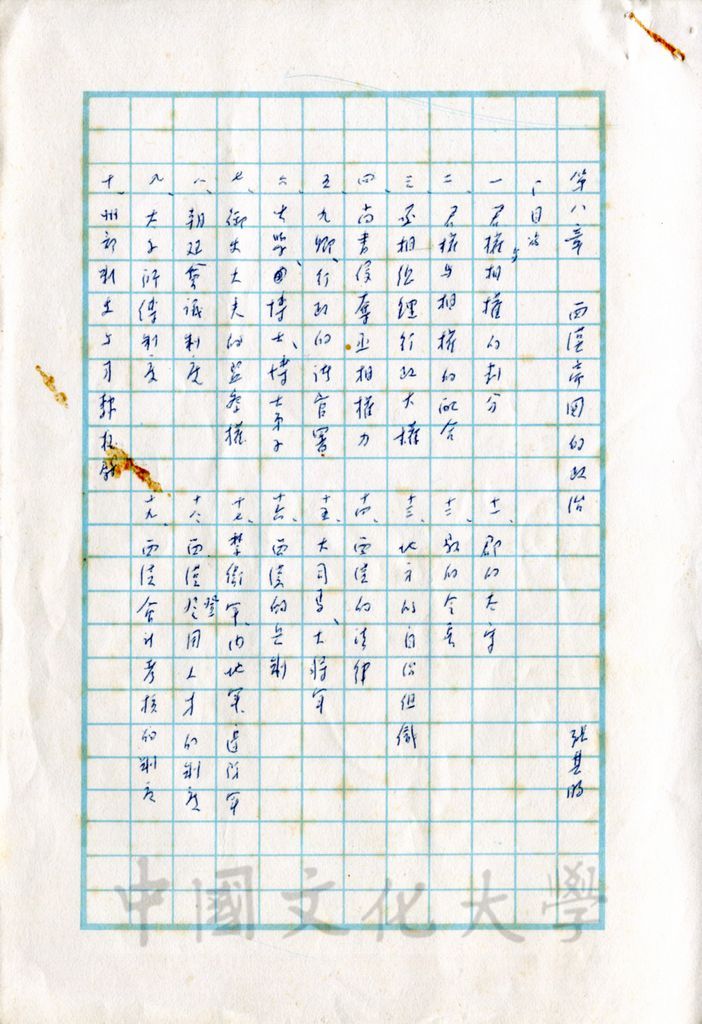 第八章 西漢帝國的政治 張其昀
「目次
一、君權與相權的劃分
二、君權與相權的配合
三、丞相總理行政大權
四、尚書侵奪丞相權力
五、九卿、行政的諸官署
六、太學、博士、博士弟子
七、御史大夫的監察權
八、朝廷會議制度
九、太子師傅制度
十、州部刺史與司隸校尉
十一、郡的太守
十二、縣的令長
十三、地方的自治組織
十四、西漢的法律
十五、大司馬、大將軍
十六、西漢的兵制
十七、禁衛軍、內地軍、邊防軍
十八、西漢登用人才的制度
十九、西漢會計考核的制度
中國文化大學